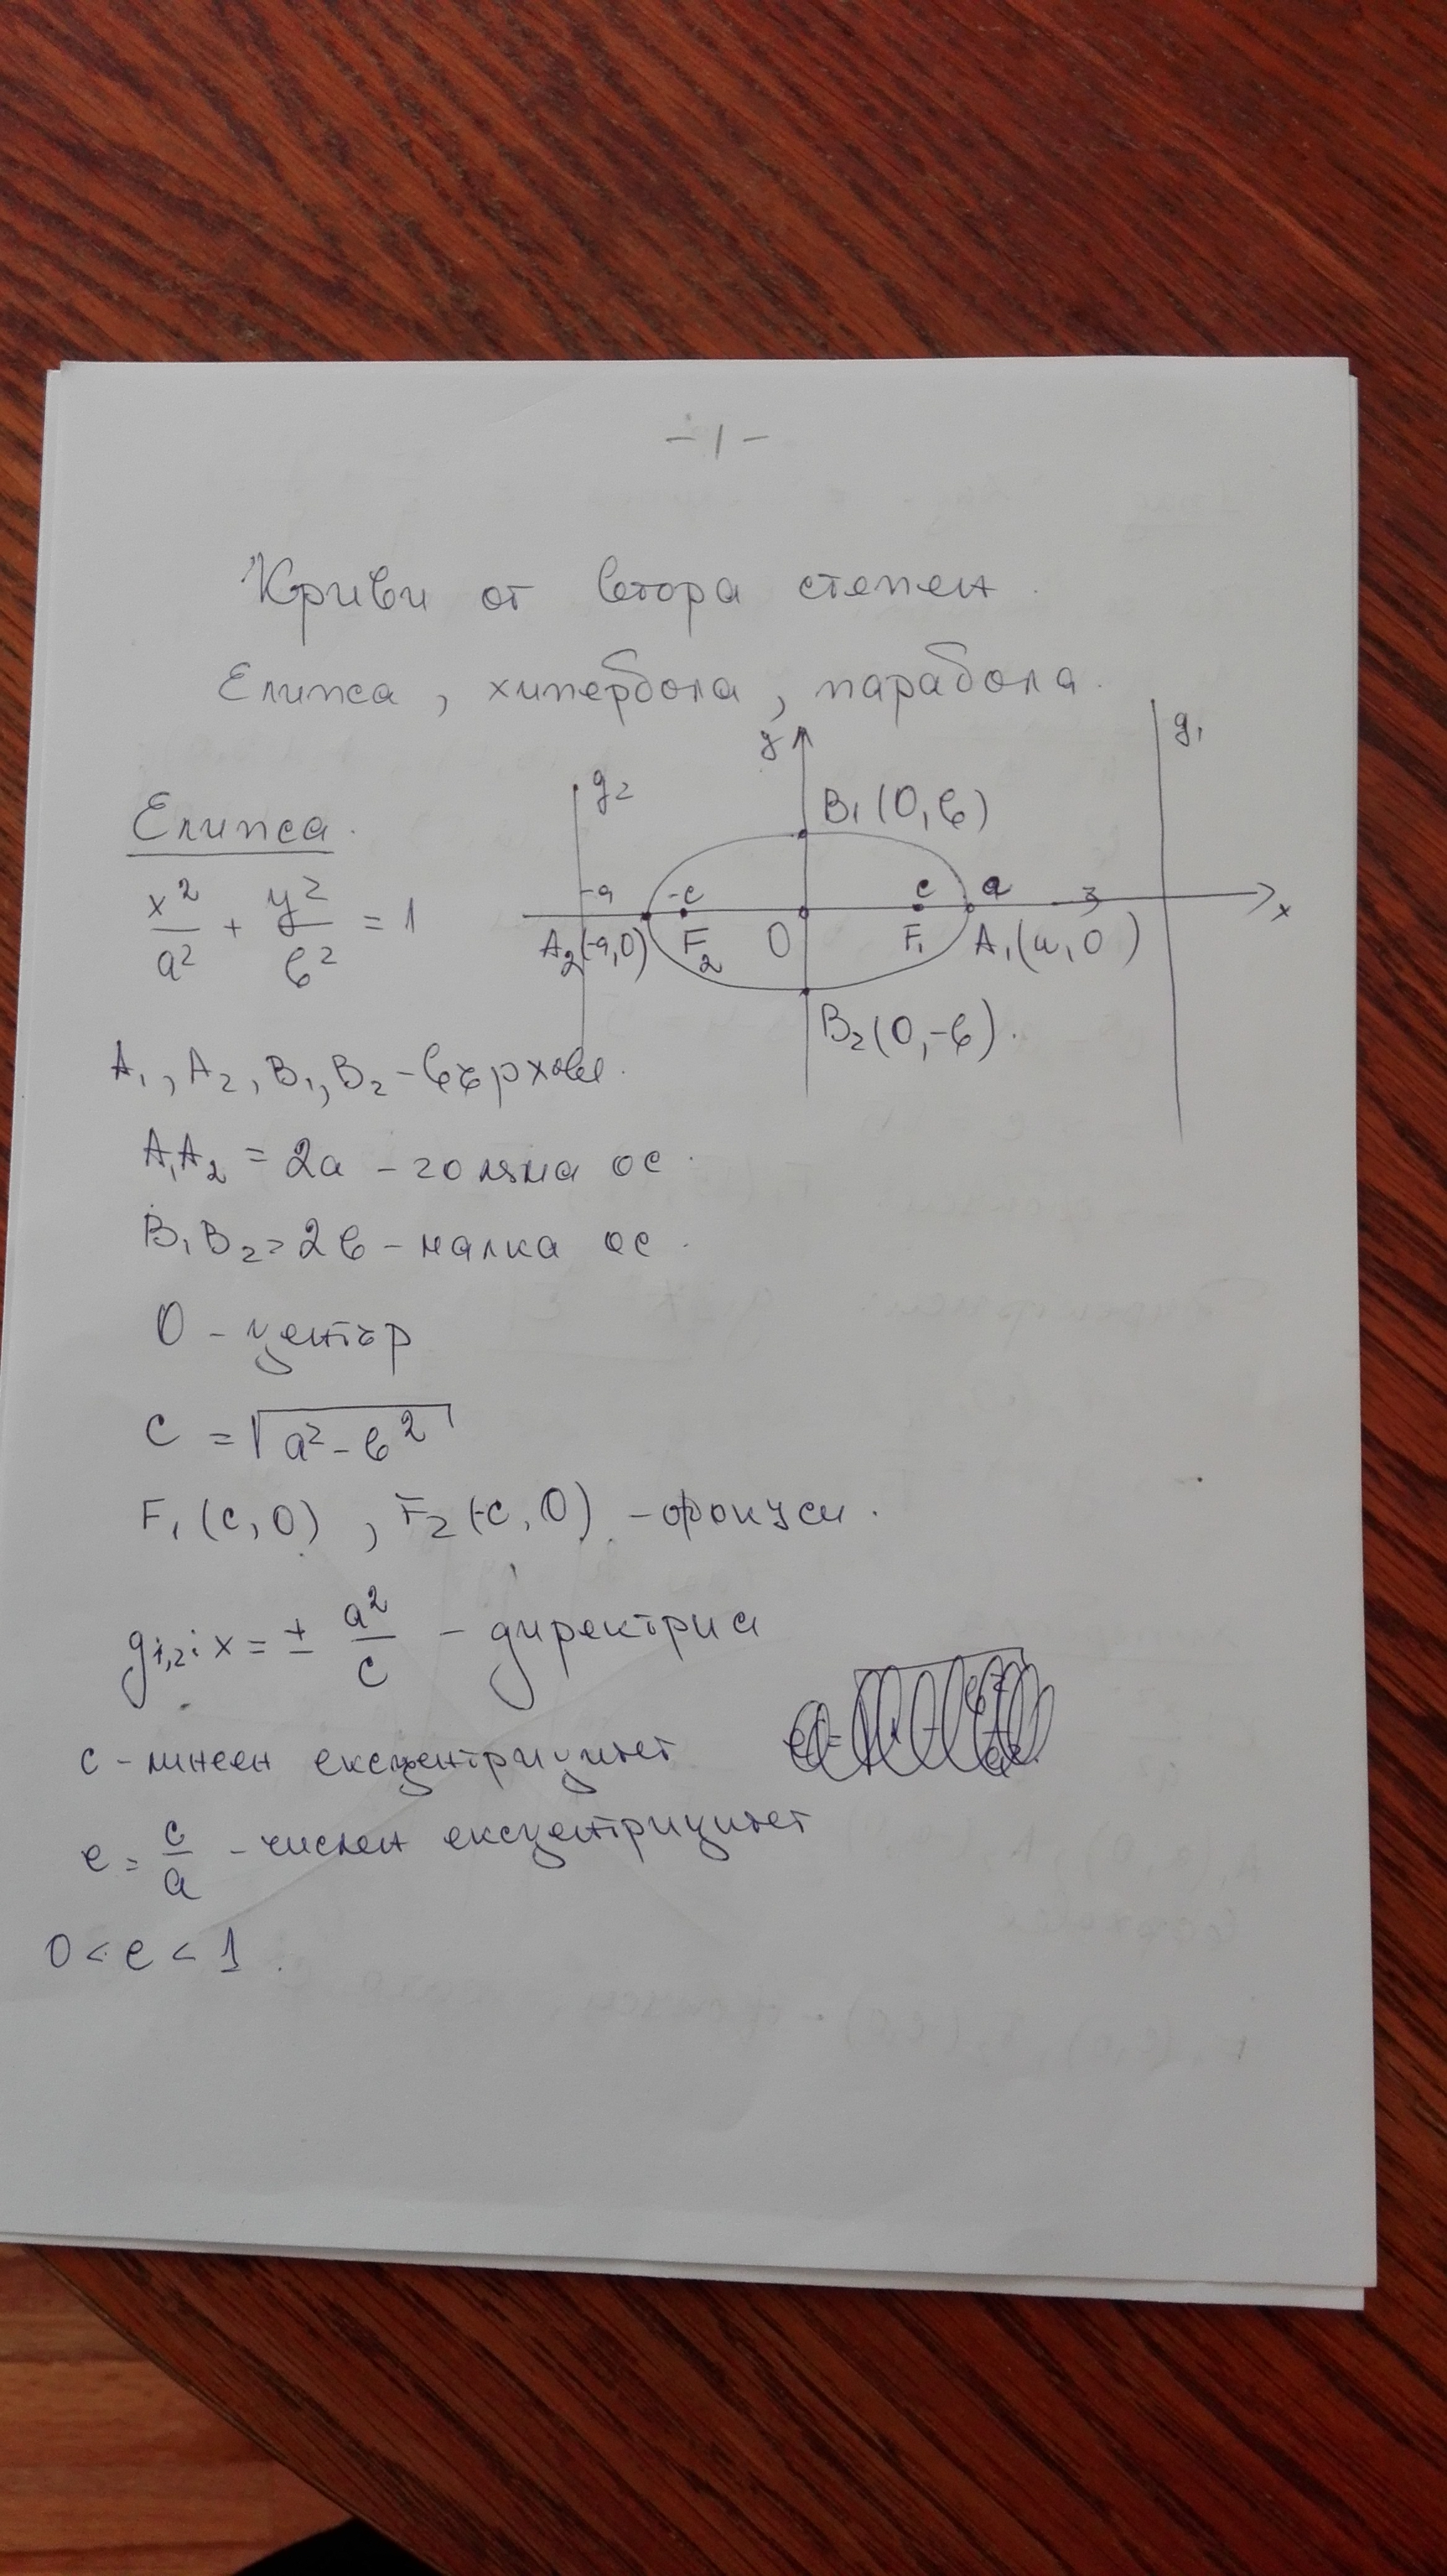 - 1 -
Криви от втора степен.
Елипса, хипербола, парабола.
Елипса.
x²/a² + y²/b² = 1
y
g₁
g₂
B₁(0, b)
-a
-c
c
a
x
A₂(-a, 0)
F₂
O
F₁
A₁(a, 0)
B₂(0, -b).
A₁, A₂, B₁, B₂ - върхове.
A₁A₂ = 2a - голяма ос.
B₁B₂ = 2b - малка ос.
O - център
c = √(a² - b²)
F₁(c, 0), F₂(-c, 0) - фокуси.
g₁,₂: x = ± a²/c - директриси
c - линеен ексцентрицитет
e = c/a - числен ексцентрицитет
0 < e < 1.